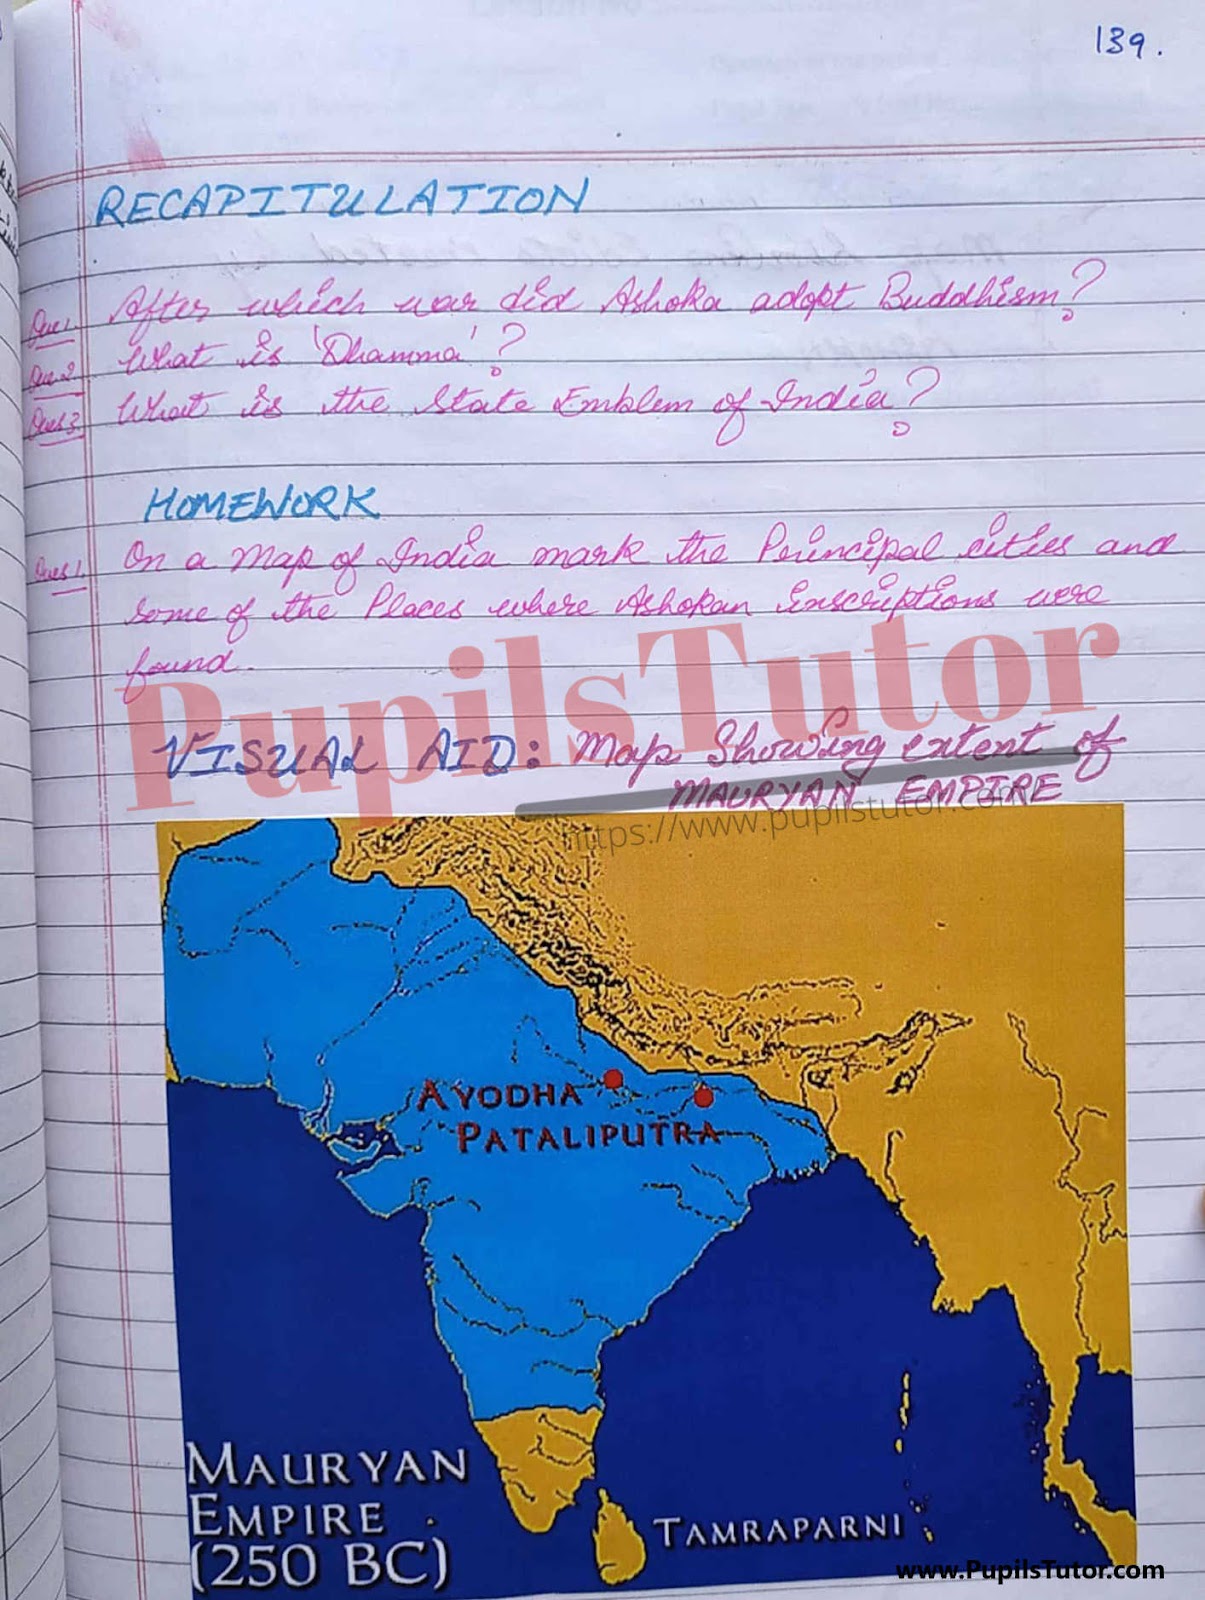 139.
RECAPITULATION
Ques 1. After which war did Ashoka adopt Buddhism?
Ques 2. What is 'Dhamma'?
Ques 3. What is the State Emblem of India?
HOMEWORK
Ques 1. On a Map of India mark the Principal cities and
some of the Places where Ashokan inscriptions were
found.
PupilsTutor
VISUAL AID: Map Showing extent of
MAURYAN EMPIRE
https://www.pupilstutor.com
AYODHA
PATALIPUTRA
MAURYAN
EMPIRE
(250 BC)
TAMRAPARNI
www.PupilsTutor.com